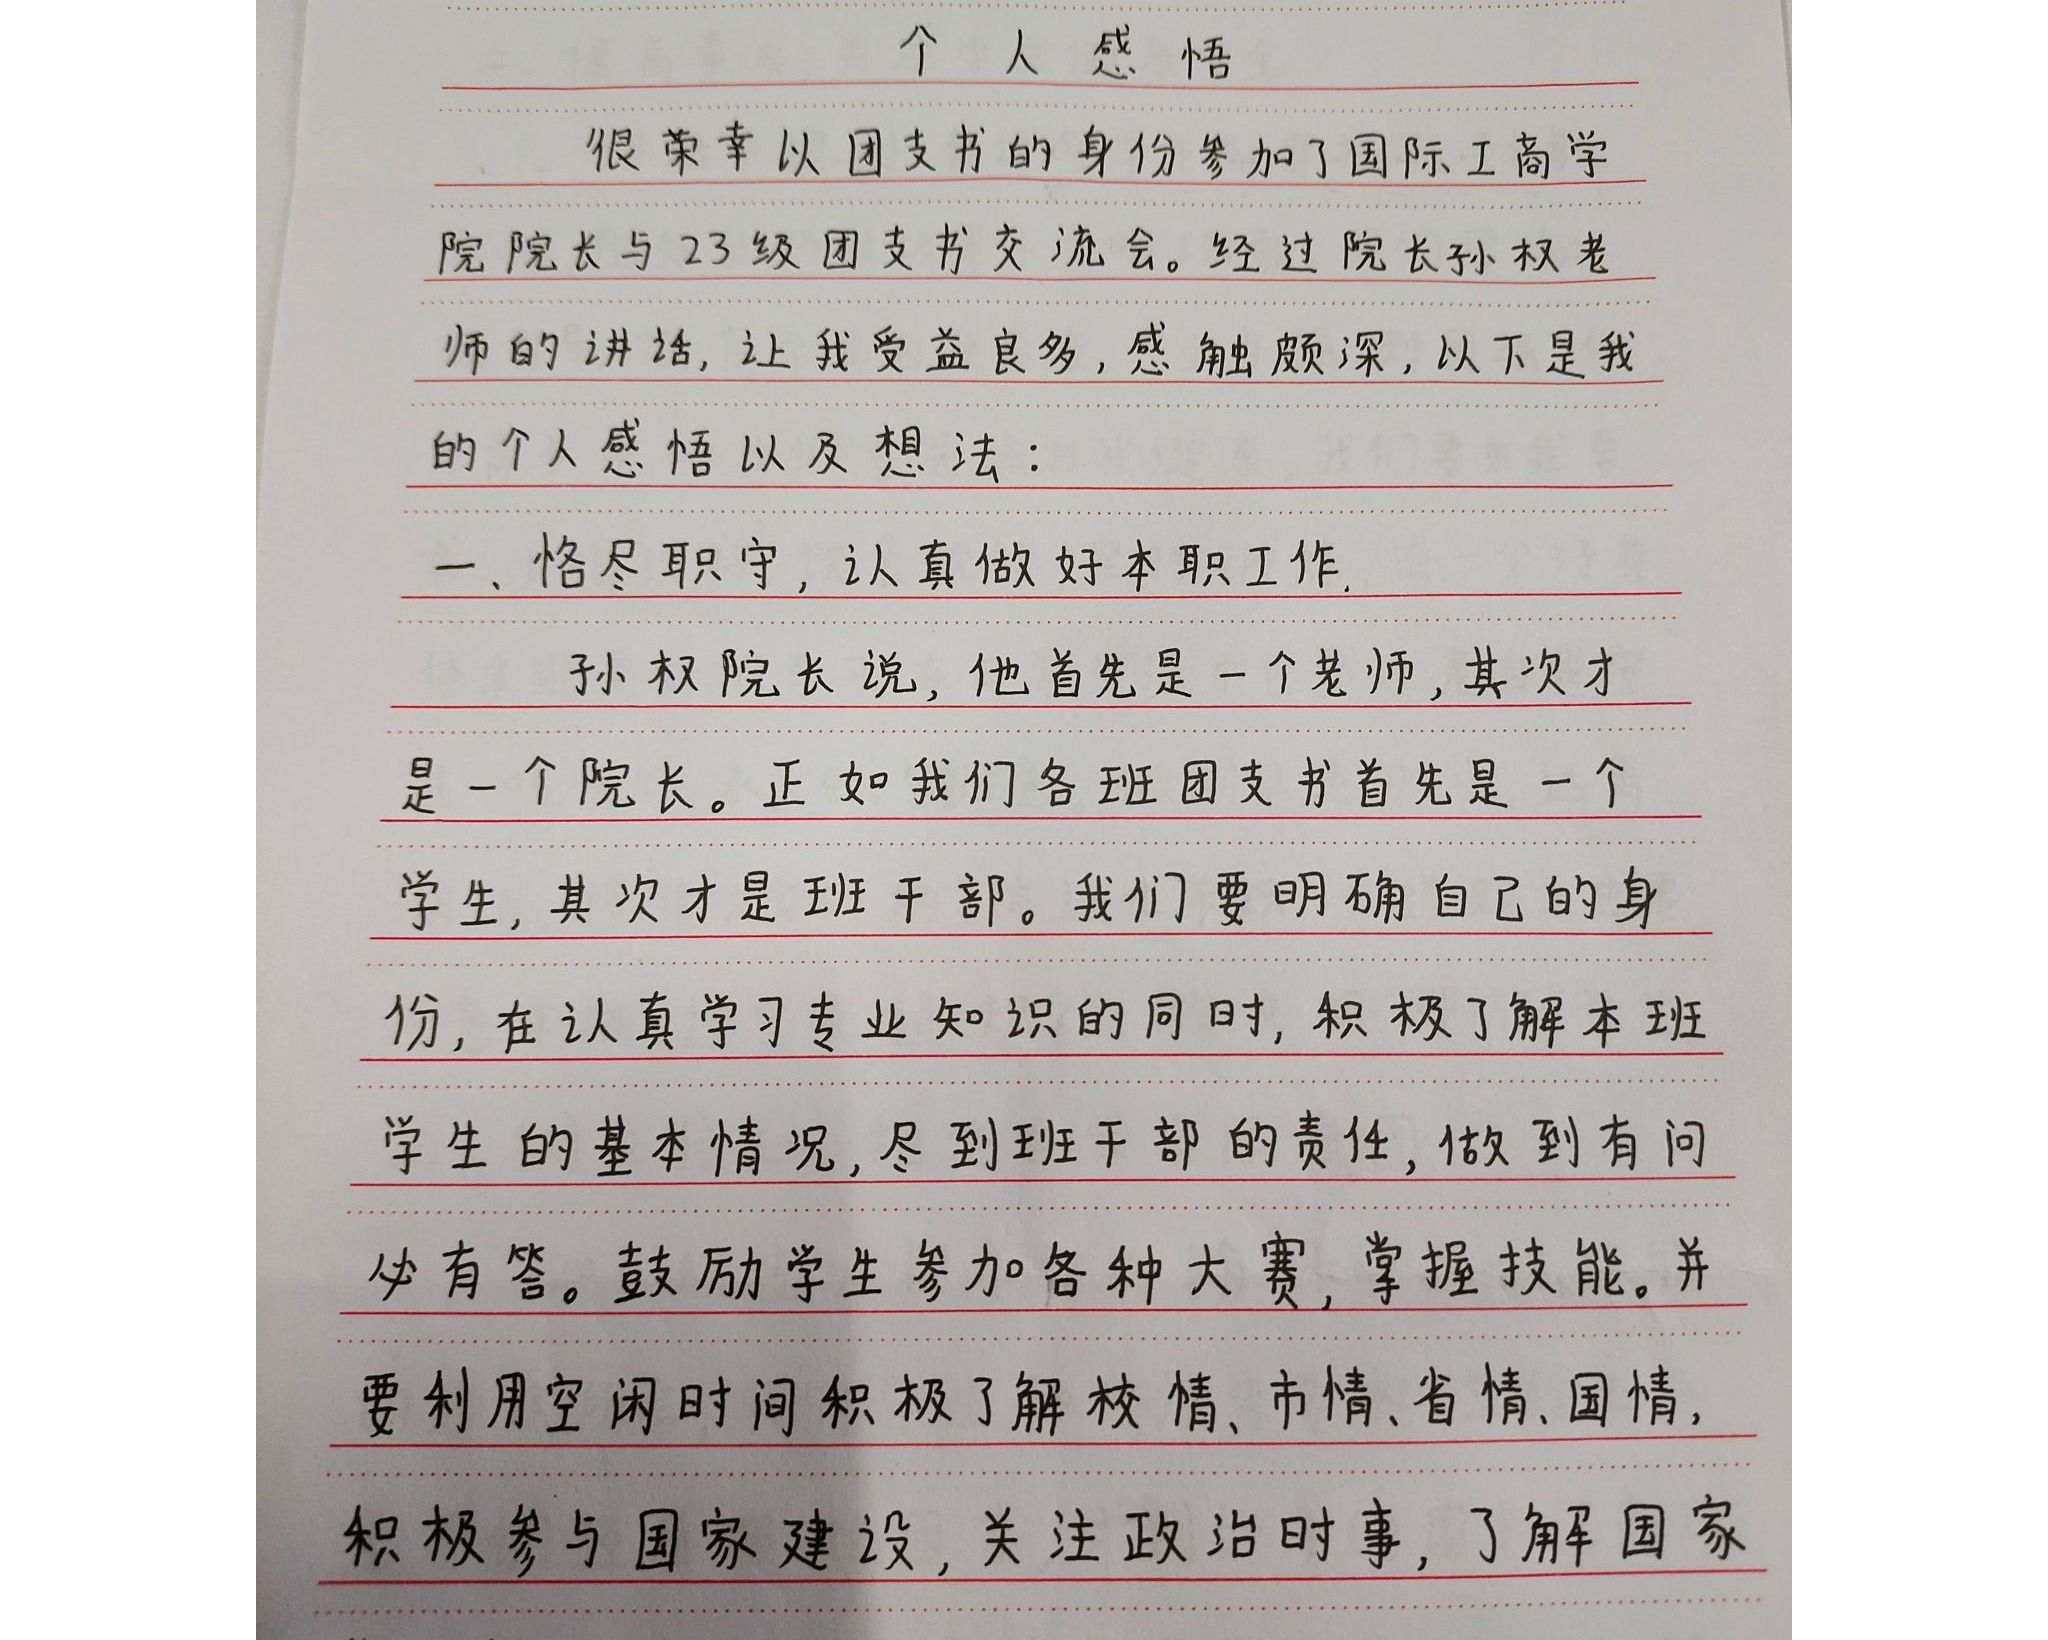 个人感悟
很荣幸以团支书的身份参加了国际工商学
院院长与23级团支书交流会。经过院长孙权老
师的讲话,让我受益良多,感触颇深,以下是我
的个人感悟以及想法:
一、恪尽职守,认真做好本职工作.
孙权院长说,他首先是一个老师,其次才
是一个院长。正如我们各班团支书首先是一个
学生,其次才是班干部。我们要明确自己的身
份,在认真学习专业知识的同时,积极了解本班
学生的基本情况,尽到班干部的责任,做到有问
必有答。鼓励学生参加各种大赛,掌握技能。并
要利用空闲时间积极了解校情、市情、省情、国情,
积极参与国家建设,关注政治时事,了解国家